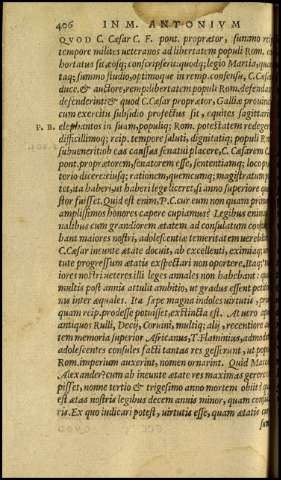 406 IN M. ANTONIVM
QVOD C. Cæsar C. F. pont. proprætor, summo rei
tempore milites veteranos ad libertatem populi Rom. co
hortatus sit, eosq; conscripserit: quodq; legio Martia, quar
taq; summo studio, optimoque in remp. consensu, C. Cæsare
duce & auctore, remp. libertatem populi Rom. defendant
defenderint: & quod C. Cæsar proprætor, Galliæ prouinc
cum exercitu subsidio profectus sit, equites sagittari
P. B. elephantos in suam, populiq; Rom. potestatem redeger
difficillimoq; reip. tempore saluti, dignitatiq; populi R
subuenerit: ob eas causas senatui placere, C. Cæsarem C
pont. proprætorem, senatorem esse, sententiamq; loco præ
torio dicere: eiusq; rationem, quemcumq; magistratum pe
tet, ita haberi, ut haberi lege liceret, si anno superiore quæ
stor fuisset. Quid est enim, P. C. cur eum non quam primum
amplissimos honores capere cupiamus? Legibus enim an
nalibus cum grandiorem ætatem ad consulatum constitue
bant maiores nostri, adolescentiæ temeritatem uerebantur
C. Cæsar ineunte ætate docuit, ab excellenti, eximiaq; uir
tute progressum ætatis exspectari non oportere. Itaq; ma
iores nostri ueteres illi leges annales non habebant: quas
multis post annis attulit ambitio, ut gradus essent petitio
nis inter æquales. Ita sæpe magna indoles uirtutis, prius
quam reip. prodesse potuisset, exstincta est. At uero apud
antiquos Rulli, Decij, Coruini, multiq; alij, recentiore au
tem memoria superior Africanus, T. Flamininus, admodum
adolescentes consules facti tantas res gesserunt, ut populi
Rom. imperium auxerint, nomen ornarint. Quid Maced
Alexander? cum ab ineunte ætate res maximas gerere cœ
pisset, nonne tertio & trigesimo anno mortem obijt? quæ
est ætas nostris legibus decem annis minor, quam consula
ris. Ex quo iudicari potest, uirtutis esse, quam ætatis cur